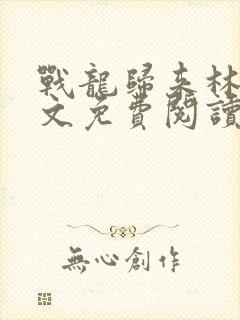 戰龍歸來林
文免費閱讀
無心創作